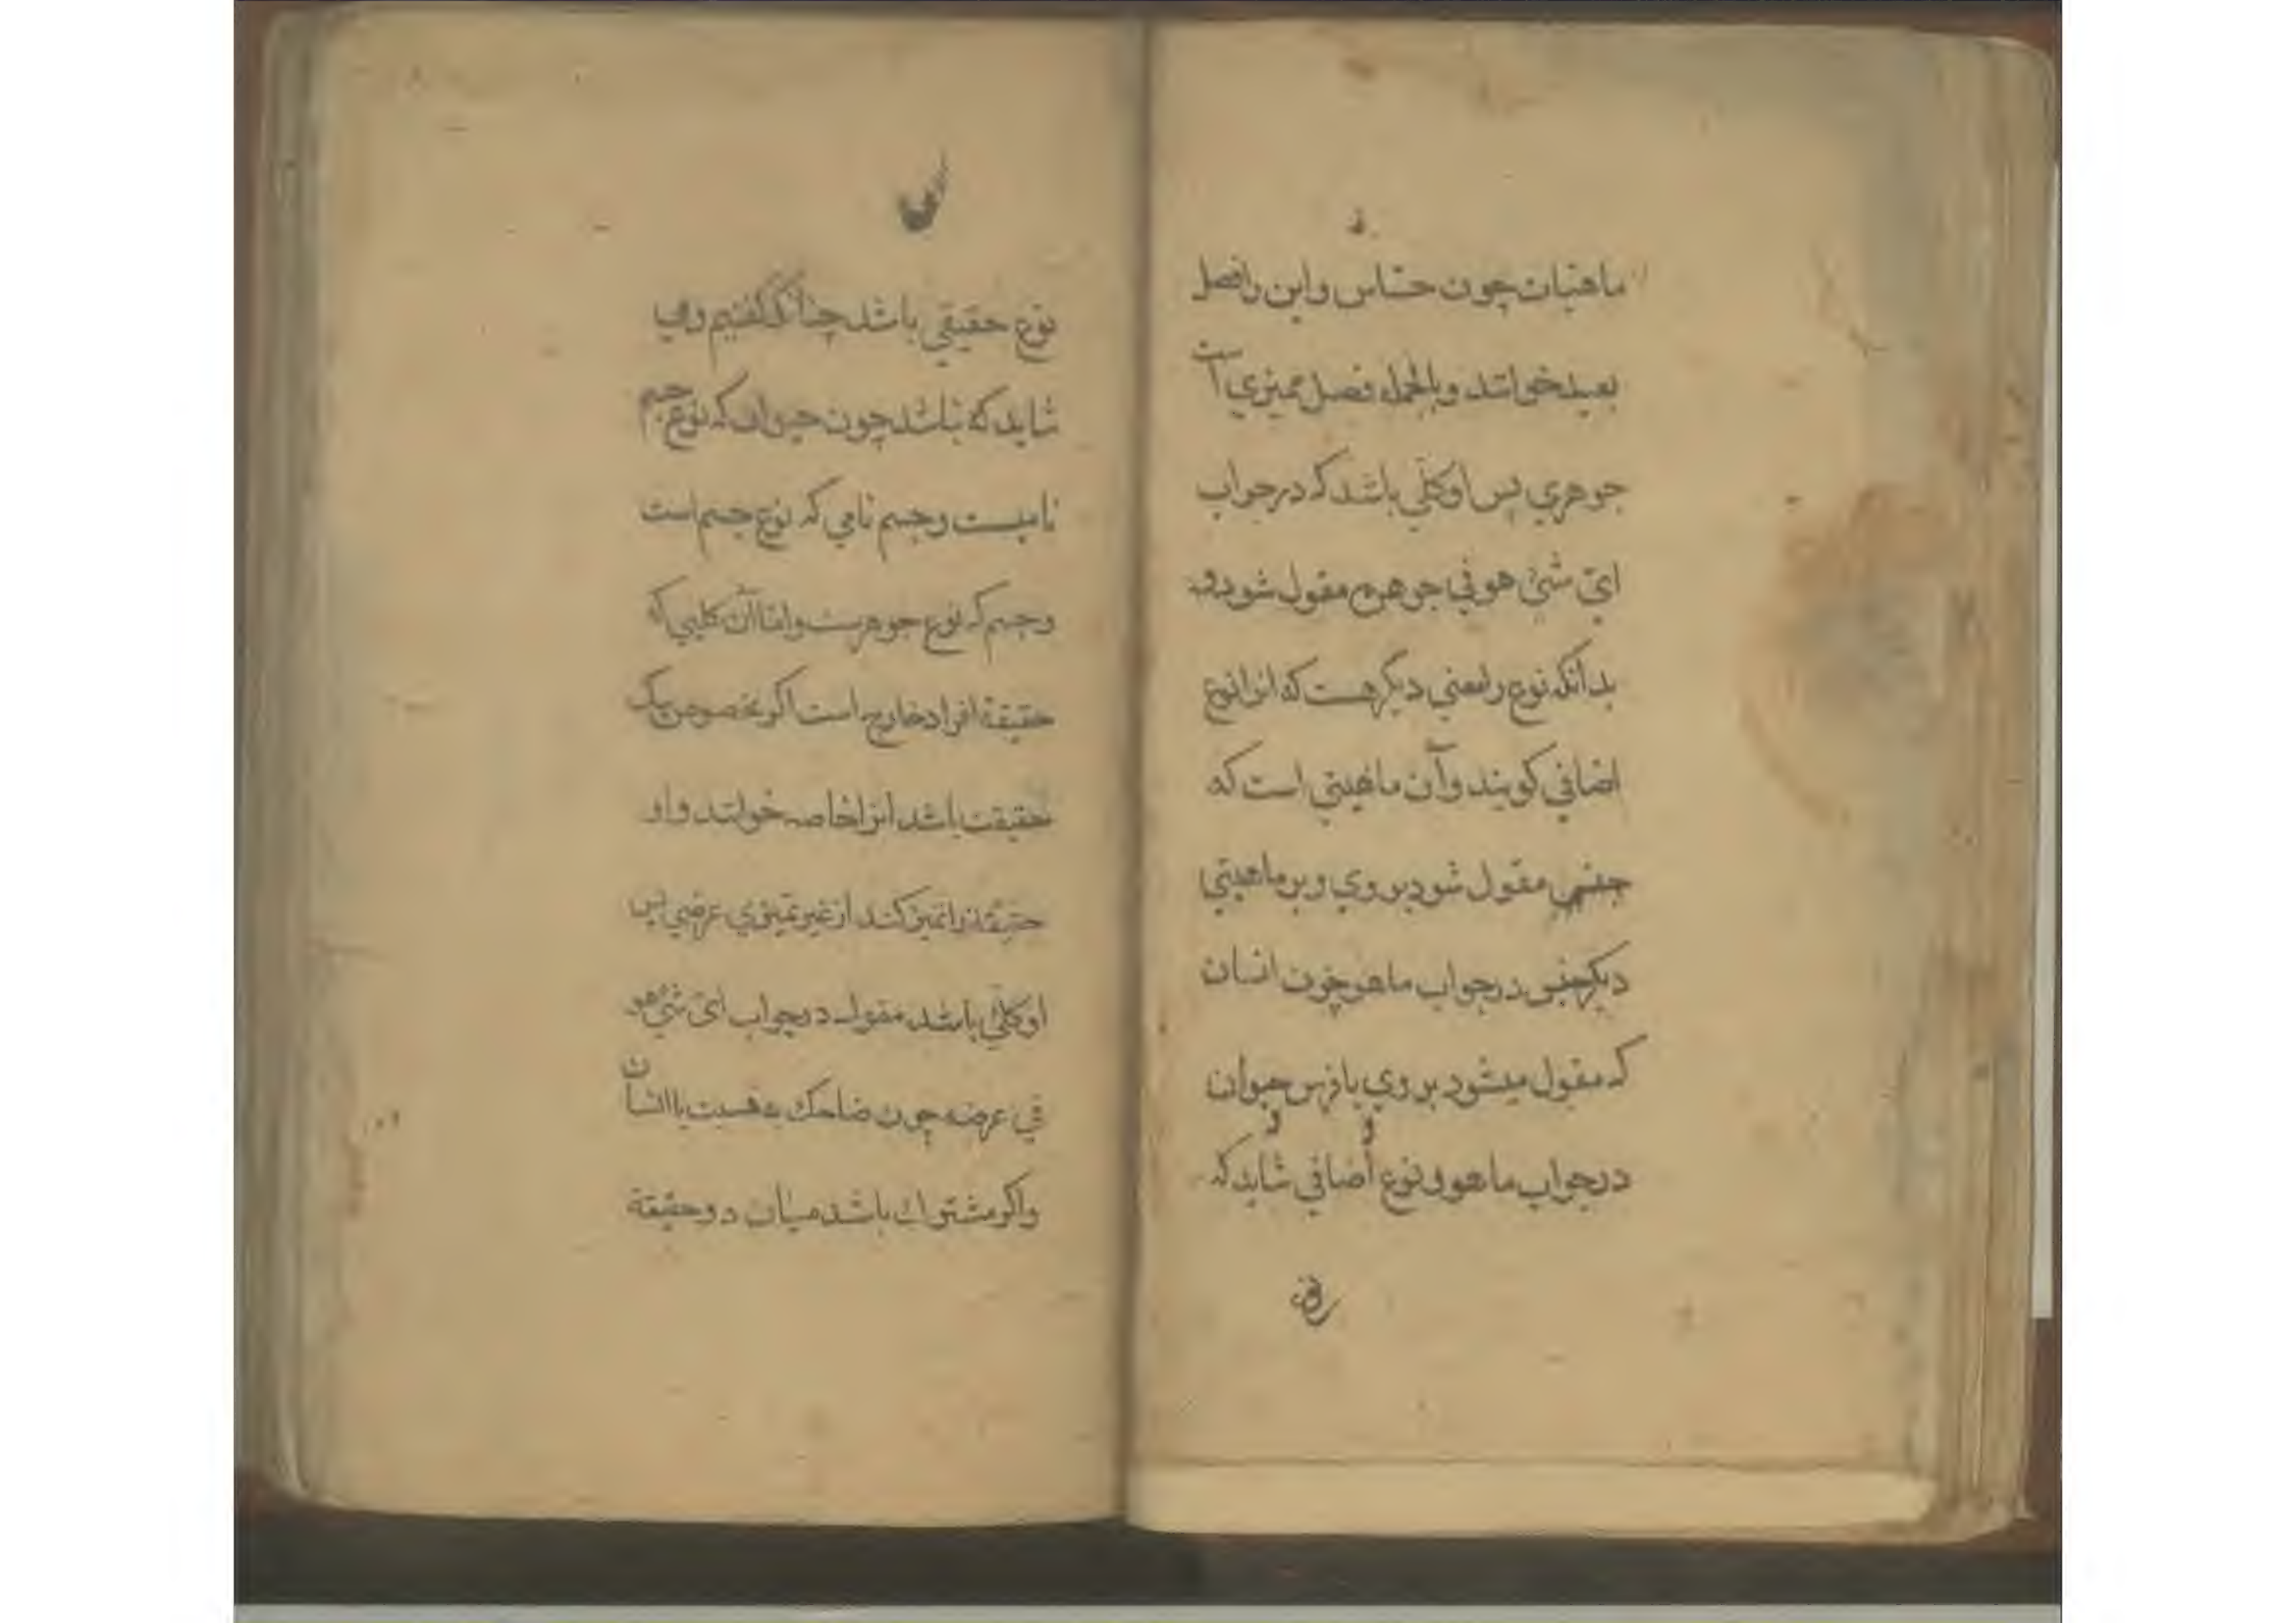 ماهیات چون حساس و این را فصل
بعید خوانند و بالجمله فصل ممیزی است
جوهری پس او کلی باشد که در جواب
ای شئ هو فی جوهره مقول شود و
بدانکه نوع را معنی دیگر هست که انرا نوع
اضافی کویند و آن ماهیتی است که
جنس مقول شود بر وی و بر ماهیتی
دیکر جنس در جواب ماهو چون انسان
که مقول میشود بر وی با فرس حیوان
در جواب ماهو و نوع اضافی شاید که
نوع حقیقی باشد چنانکه کفتیم و
شاید که نباشد چون حیوان که نوع جسم
نامیست و جسم نامی که نوع جسم است
و جسم که نوع جوهرست و اما آن کلیی که
حقیقة افراد خارج است اکر مخصوص بیک
حقیقت باشد انرا خاصه خوانند و او
حقیقة را تمیز کند از غیر تمیزی عرضی پس
او کلی باشد مقول در جواب ای شئ هو
فی عرضه چون ضاحک به نسبت با انسان
و اکر مشترك باشد میان دو حقیقة